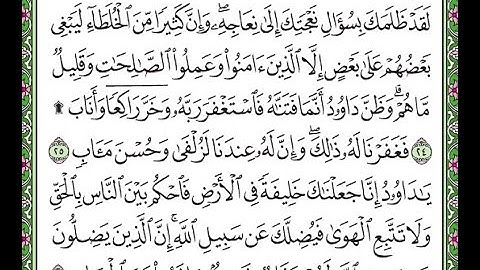 لَقَدْ ظَلَمَكَ بِسُؤَالِ نَعْجَتِكَ إِلَىٰ نِعَاجِهِۦ ۖ وَإِنَّ كَثِيرًا مِّنَ ٱلْخُلَطَآءِ لَيَبْغِى
بَعْضُهُمْ عَلَىٰ بَعْضٍ إِلَّا ٱلَّذِينَ ءَامَنُوا۟ وَعَمِلُوا۟ ٱلصَّٰلِحَٰتِ وَقَلِيلٌ
مَّا هُمْ ۗ وَظَنَّ دَاوُۥدُ أَنَّمَا فَتَنَّٰهُ فَٱسْتَغْفَرَ رَبَّهُۥ وَخَرَّ رَاكِعًا وَأَنَابَ ۩
٢٤ فَغَفَرْنَا لَهُۥ ذَٰلِكَ ۖ وَإِنَّ لَهُۥ عِندَنَا لَزُلْفَىٰ وَحُسْنَ مَـَٔابٍ ٢٥
يَٰدَاوُۥدُ إِنَّا جَعَلْنَٰكَ خَلِيفَةً فِى ٱلْأَرْضِ فَٱحْكُم بَيْنَ ٱلنَّاسِ بِٱلْحَقِّ
وَلَا تَتَّبِعِ ٱلْهَوَىٰ فَيُضِلَّكَ عَن سَبِيلِ ٱللَّهِ ۚ إِنَّ ٱلَّذِينَ يَضِلُّونَ